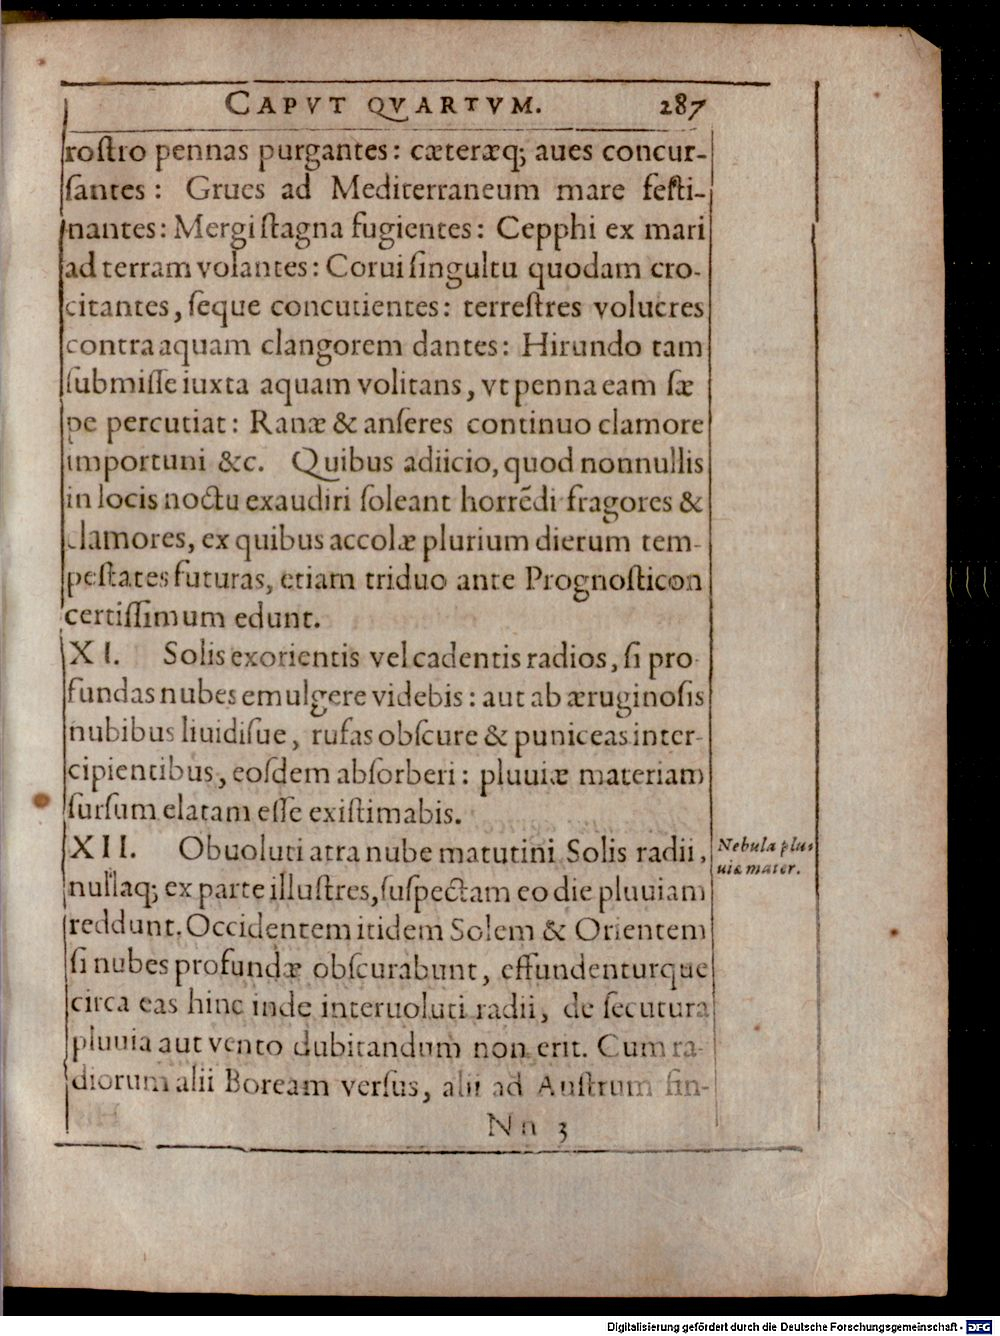 CAPVT QVARTVM. 287
roſtro pennas purgantes: cæteræq; aues concur-
ſantes: Grues ad Mediterraneum mare feſti-
nantes: Mergi ſtagna fugientes: Cepphi ex mari
ad terram volantes: Corui ſingultu quodam cro-
citantes, ſeque concutientes: terreſtres volucres
contra aquam clangorem dantes: Hirundo tam
ſubmiſſe iuxta aquam volitans, vt penna eam ſæ
pe percutiat: Ranæ & anſeres continuo clamore
importuni &c. Quibus adiicio, quod nonnullis
in locis noctu exaudiri ſoleant horrēdi fragores &
clamores, ex quibus accolæ plurium dierum tem-
peſtates futuras, etiam triduo ante Prognoſticon
certiſſimum edunt.
XI. Solis exorientis vel cadentis radios, ſi pro-
fundas nubes emulgere videbis: aut ab æruginoſis
nubibus liuidiſue, rufas obſcure & puniceas inter-
cipientibus, eoſdem abſorberi: pluuiæ materiam
ſurſum elatam eſſe exiſtimabis.
XII. Obuoluti atra nube matutini Solis radii,
nullaq; ex parte illuſtres, ſuſpectam eo die pluuiam
reddunt. Occidentem itidem Solem & Orientem
ſi nubes profundæ obſcurabunt, effundenturque
circa eas hinc inde interuoluti radii, de ſecutura
pluuia aut vento dubitandum non erit. Cum ra-
diorum alii Boream verſus, alii ad Auſtrum ſin-
Nn 3
Nebula plu-
uiæ mater.
Digitalisierung gefördert durch die Deutsche Forschungsgemeinschaft - DFG